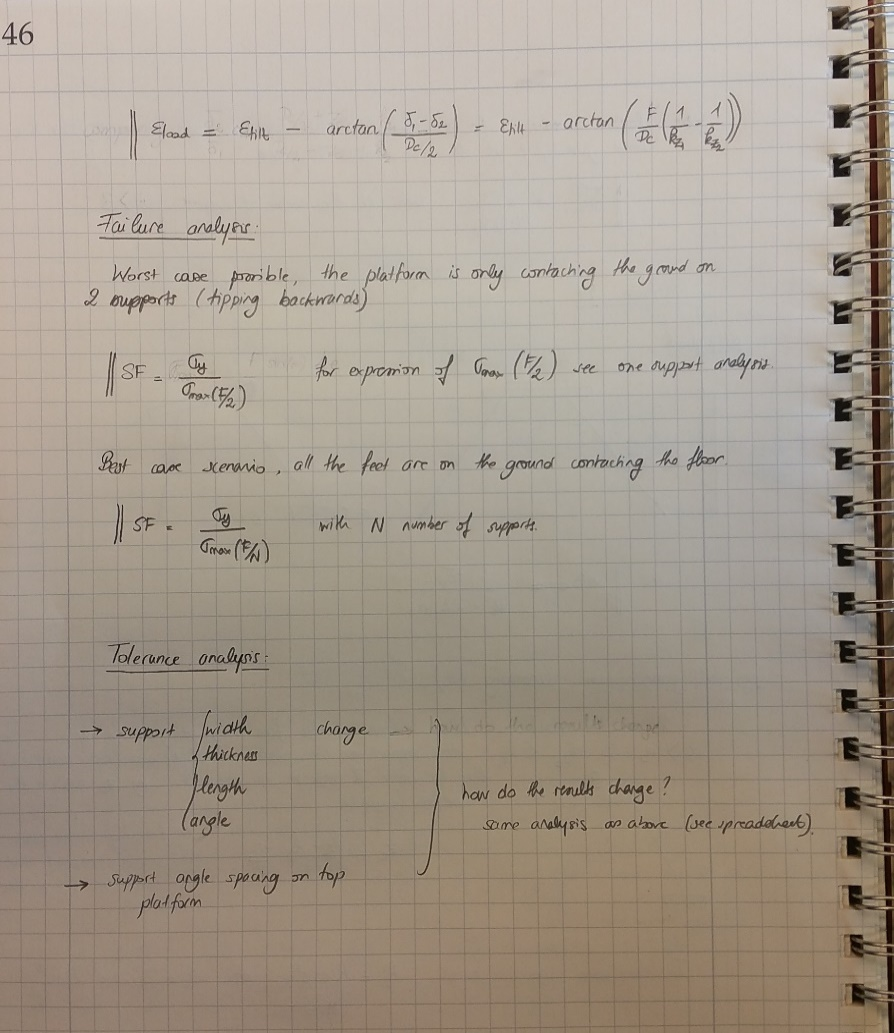 46
|| εload = εtilt − arctan((δ1−δ2)/(Dc/2)) = εtilt − arctan(F/Dc (1/kz1 − 1/kz2))
Failure analysis:
Worst case possible, the platform is only contacting the ground on
2 supports (tipping backwards)
|| SF = σy/σmax(F/2) for expression of σmax (F/2) see one support analysis.
Best case scenario, all the feet are on the ground contacting the floor.
|| SF = σy/σmax(F/N) with N number of supports.
Tolerance analysis:
→ support { width change
thickness
length
angle
how do the results change?
same analysis as above (see spreadsheet).
→ support angle spacing on top
platform